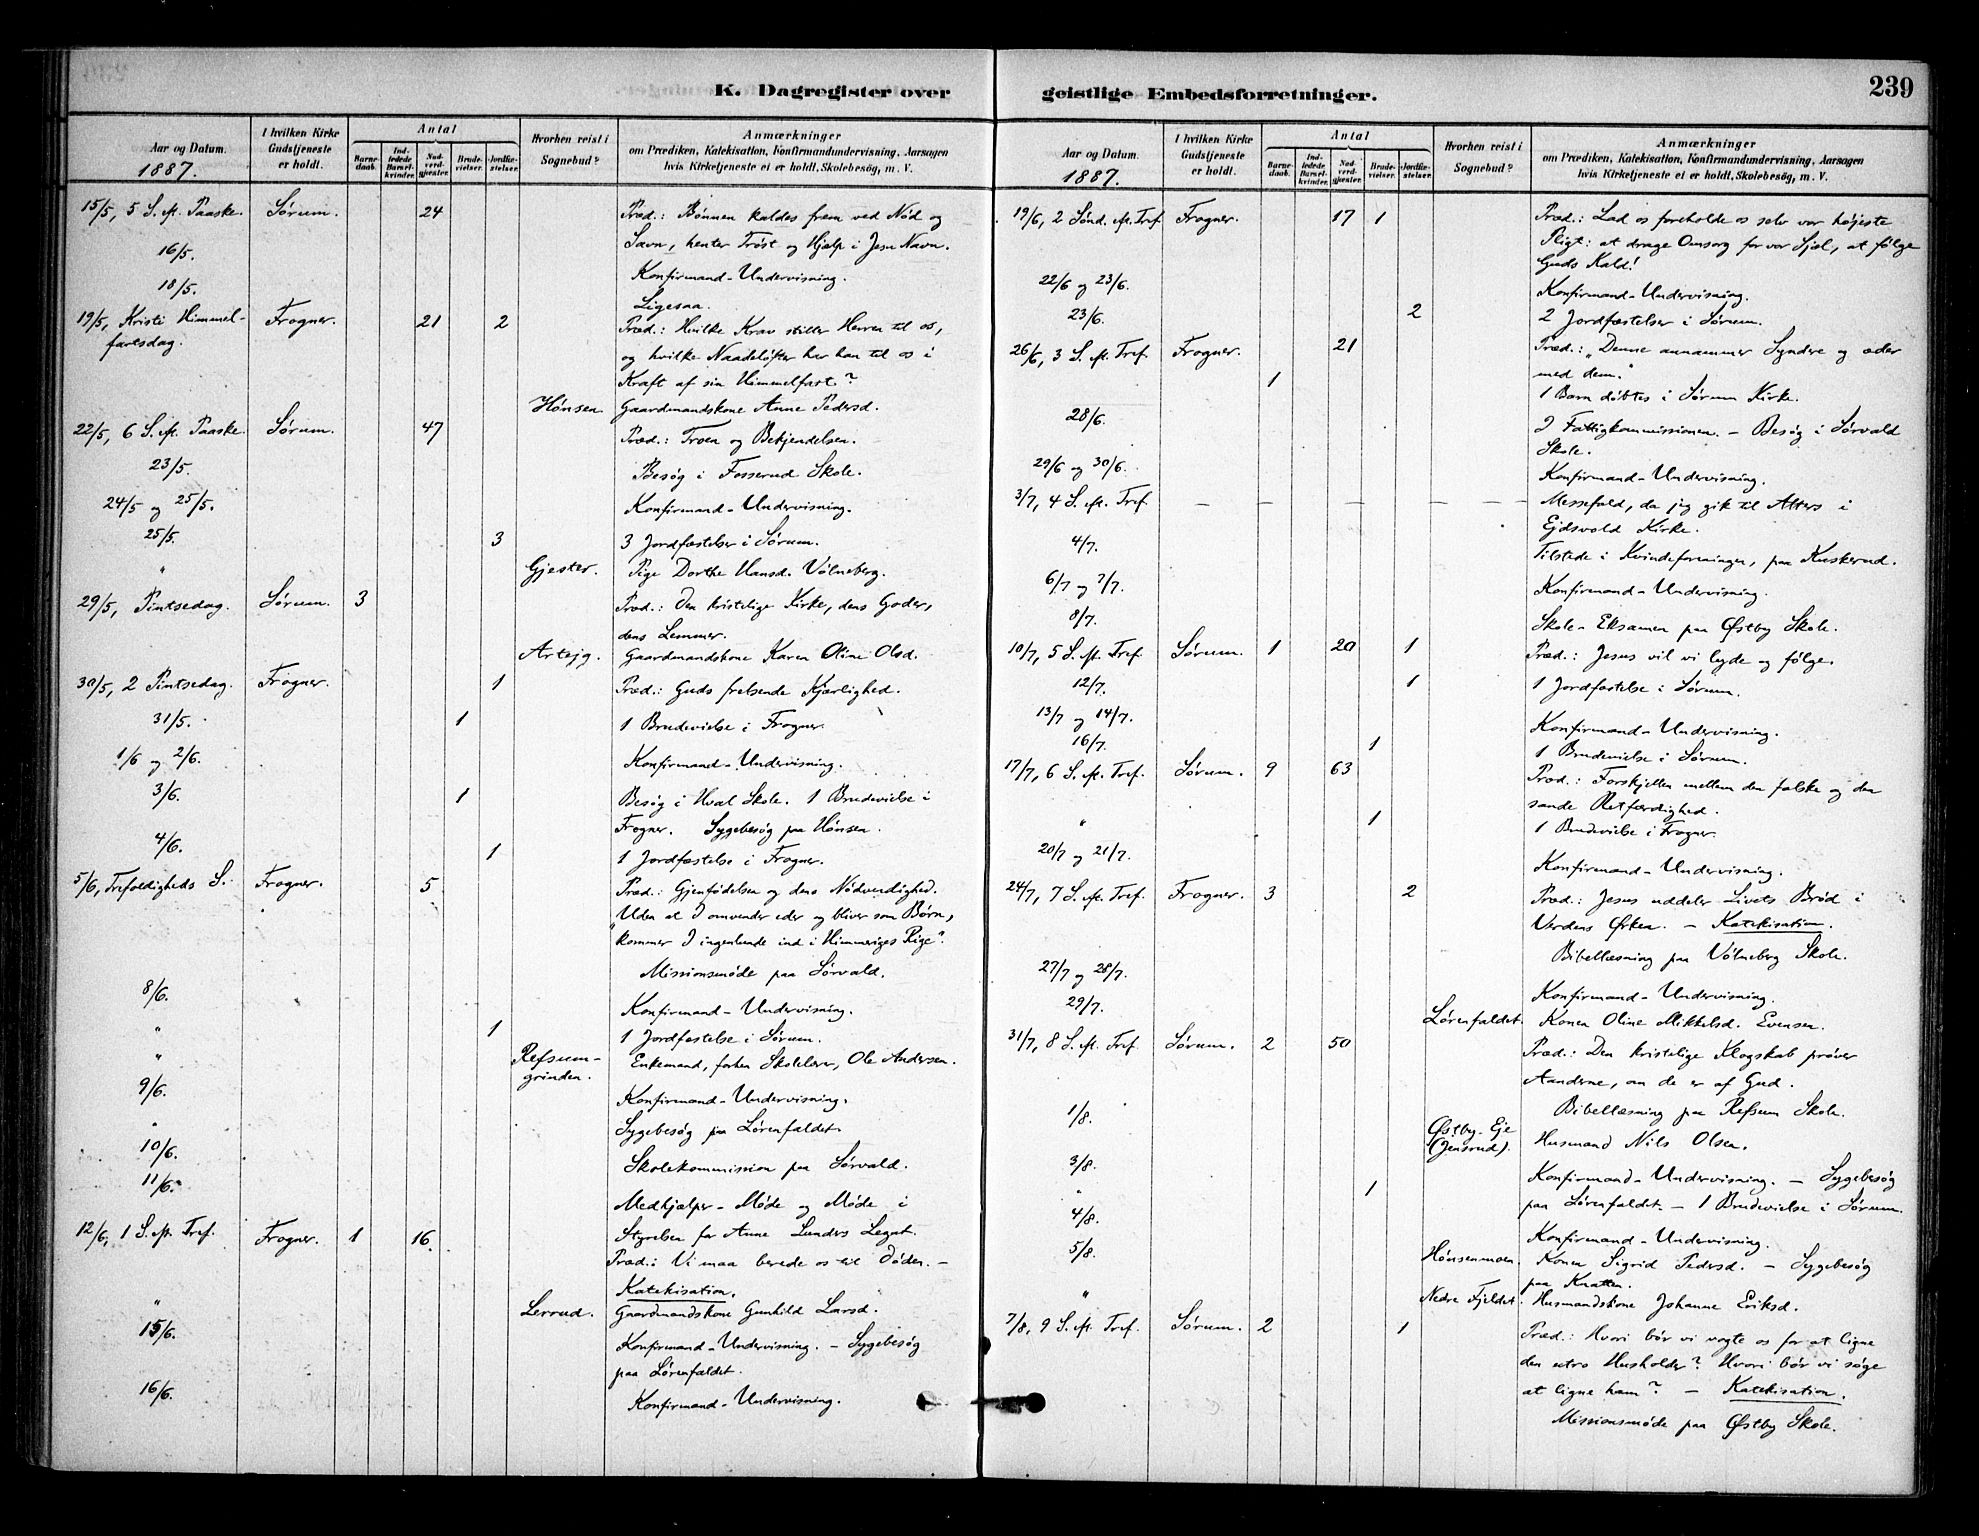 K. Dagregister over
Aar og Datum.
1887.
I hvilken Kirke Gudstjeneste er holdt.
Antal
Barnedaab.
Indledede Barselkvinder.
Nadverdgjester.
Brudevielser.
Jordfæstelser.
Hvorhen reist i Sognebud?
Anmærkninger
om Prædiken, Katekisation, Konfirmandundervisning, Aarsagen
hvis Kirketjeneste ei er holdt, Skolebesøg, m. V.
15/5, 5 S. e. Paaske. Sørum. 24 Præd.: Bønnen kaldes frem ved Nød og
Savn, henter Trøst og Hjælp i Jesu Navn.
16/5. Konfirmand-Undervisning.
18/5. Ligesaa.
19/5, Kristi Himmel- Frogner. 21 2 Præd.: Hvilke Krav stiller Herren til os,
fartsdag. og hvilke Naadeløfter har han til os i
Kraft af sin Himmelfart?
Hønsen. Gaardmandskone Anne Pedersd.
22/5, 6 S. e. Paaske. Sørum. 47 Præd.: Troen og Bekjendelsen.
23/5. Besøg i Fosserud Skole.
24/5 og 25/5. Konfirmand-Undervisning.
25/5. 3 3 Jordfæstelser i Sørum.
" Gjester. Pige Dorthe Hansd. Vølneberg.
29/5, Pintsedag. Sørum. 3 Præd.: Den kristelige Kirke, dens Goder,
dens Lemmer.
Arteig. Gaardmandskone Karen Oline Olsd.
30/5, 2 Pintsedag. Frogner. 1 Præd.: Guds frelsende Kjærlighed.
31/5. 1 1 Brudevielse i Frogner.
1/6 og 2/6. Konfirmand-Undervisning.
3/6. 1 Besøg i Hval Skole. 1 Brudevielse i
Frogner. Sygebesøg paa Hønsen.
4/6. 1 1 Jordfæstelse i Frogner.
5/6, Trefoldigheds S. Frogner. 5 Præd.: Gjenfødelsen og dens Nødvendighed.
Uden at I omvender eder og bliver som Børn,
"kommer I ingenlunde ind i Himmeriges Rige".
Missionsmøde paa Sørvald.
8/6. Konfirmand-Undervisning.
" 1 1 Jordfæstelse i Sørum.
" Refsum- Enkemand, forhen Skolelærer, Ole Andersen.
grinden.
9/6. Konfirmand-Undervisning.
" Sygebesøg paa Lørenfaldet.
10/6. Skolekommission paa Sørvald.
11/6. Medhjælper-Møde og Møde i
Styrelsen for Anne Lunders Legat.
12/6, 1 S. e. Tref. Frogner. 1 16. Præd.: Vi maa berede os til Døden. –
Katekisation.
" Lerrud. Gaardmandskone Gunhild Larsd.
15/6. Konfirmand-Undervisning. – Sygebesøg
paa Lørenfaldet.
16/6. Konfirmand-Undervisning.
geistlige Embedsforretninger.
239
Aar og Datum.
1887.
I hvilken Kirke Gudstjeneste er holdt.
Antal
Barnedaab.
Indledede Barselkvinder.
Nadverdgjester.
Brudevielser.
Jordfæstelser.
Hvorhen reist i Sognebud?
Anmærkninger
om Prædiken, Katekisation, Konfirmandundervisning, Aarsagen
hvis Kirketjeneste ei er holdt, Skolebesøg, m. V.
19/6, 2 Sønd. e. Tref. Frogner. 17 1 Præd.: Lad os foreholde os selv vor højeste
Pligt: at drage Omsorg for vor Sjæl, at følge
Guds Kald!
22/6 og 23/6. Konfirmand-Undervisning.
23/6. 2 2 Jordfæstelser i Sørum.
26/6, 3 S. e. Tref. Frogner. 21 Præd.: "Denne annammer Syndere og æder
med dem."
1 1 Barn døbtes i Sørum Kirke.
28/6. I Fattigkommissionen. – Besøg i Sørvald
Skole.
29/6 og 30/6. Konfirmand-Undervisning.
3/7, 4 S. e. Tref. – – – – – – – Messefald, da jeg gik til Alters i
Ejdsvold Kirke.
4/7. Tilstede i Kvindeforeningen, paa Kuskerud.
6/7 og 7/7. Konfirmand-Undervisning.
8/7. Skole-Eksamen paa Østby Skole.
10/7, 5 S. e. Tref. Sørum. 1 20 1 Præd.: Jesus vil vi lyde og følge.
12/7. 1 1 Jordfæstelse i Sørum.
13/7 og 14/7. Konfirmand-Undervisning.
16/7. 1 1 Brudevielse i Sørum.
17/7, 6 S. e. Tref. Sørum. 9 63 Præd.: Forskjellen mellem den falske og den
sande Retfærdighed.
" 1 1 Brudevielse i Frogner.
20/7 og 21/7. Konfirmand-Undervisning.
24/7, 7 S. e. Tref. Frogner. 3 2 Præd.: Jesus uddeler Livets Brød i
Verdens Ørken. – Katekisation.
Bibellæsning paa Vølneberg Skole.
27/7 og 28/7. Konfirmand-Undervisning.
29/7. Lørenfaldet. Konen Oline Mikkelsd. Evensen.
31/7, 8 S. e. Tref. Sørum. 2 50 Præd.: Den kristelige Klogskab prøver
Aanderne, om de er af Gud.
Bibellæsning paa Refsum Skole.
1/8. Østby-Eje Husmand Nils Olsen.
(Jensrud).
3/8. Konfirmand-Undervisning. – Sygebesøg
" 1 paa Lørenfaldet. – 1 Brudevielse i Sørum.
4/8. Konfirmand-Undervisning.
5/8. Hønsenmoen. Konen Sigrid Pedersd. – Sygebesøg
paa Knatten.
" Nedre Fjeldet. Husmandskone Johanne Eriksd.
7/8, 9 S. e. Tref. Sørum. 2 1 Præd.: Hvori bør vi vogte os for at ligne
den utro Husholder? Hvori bør vi søge
at ligne ham? – Katekisation.
Missionsmøde paa Østby Skole.